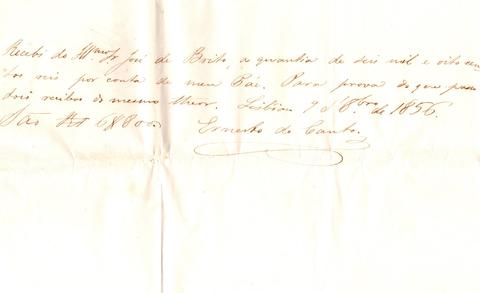 Recebi do Illmo. Sr. José de Brito, a quantia de seis mil e oitocen
tos reis por conta de meu Pái. Para prova do que passo
dois recibos do mesmo theor. Lisboa 9 d'8bro de 1856.
São Rs 6$800
Ernesto do Canto.